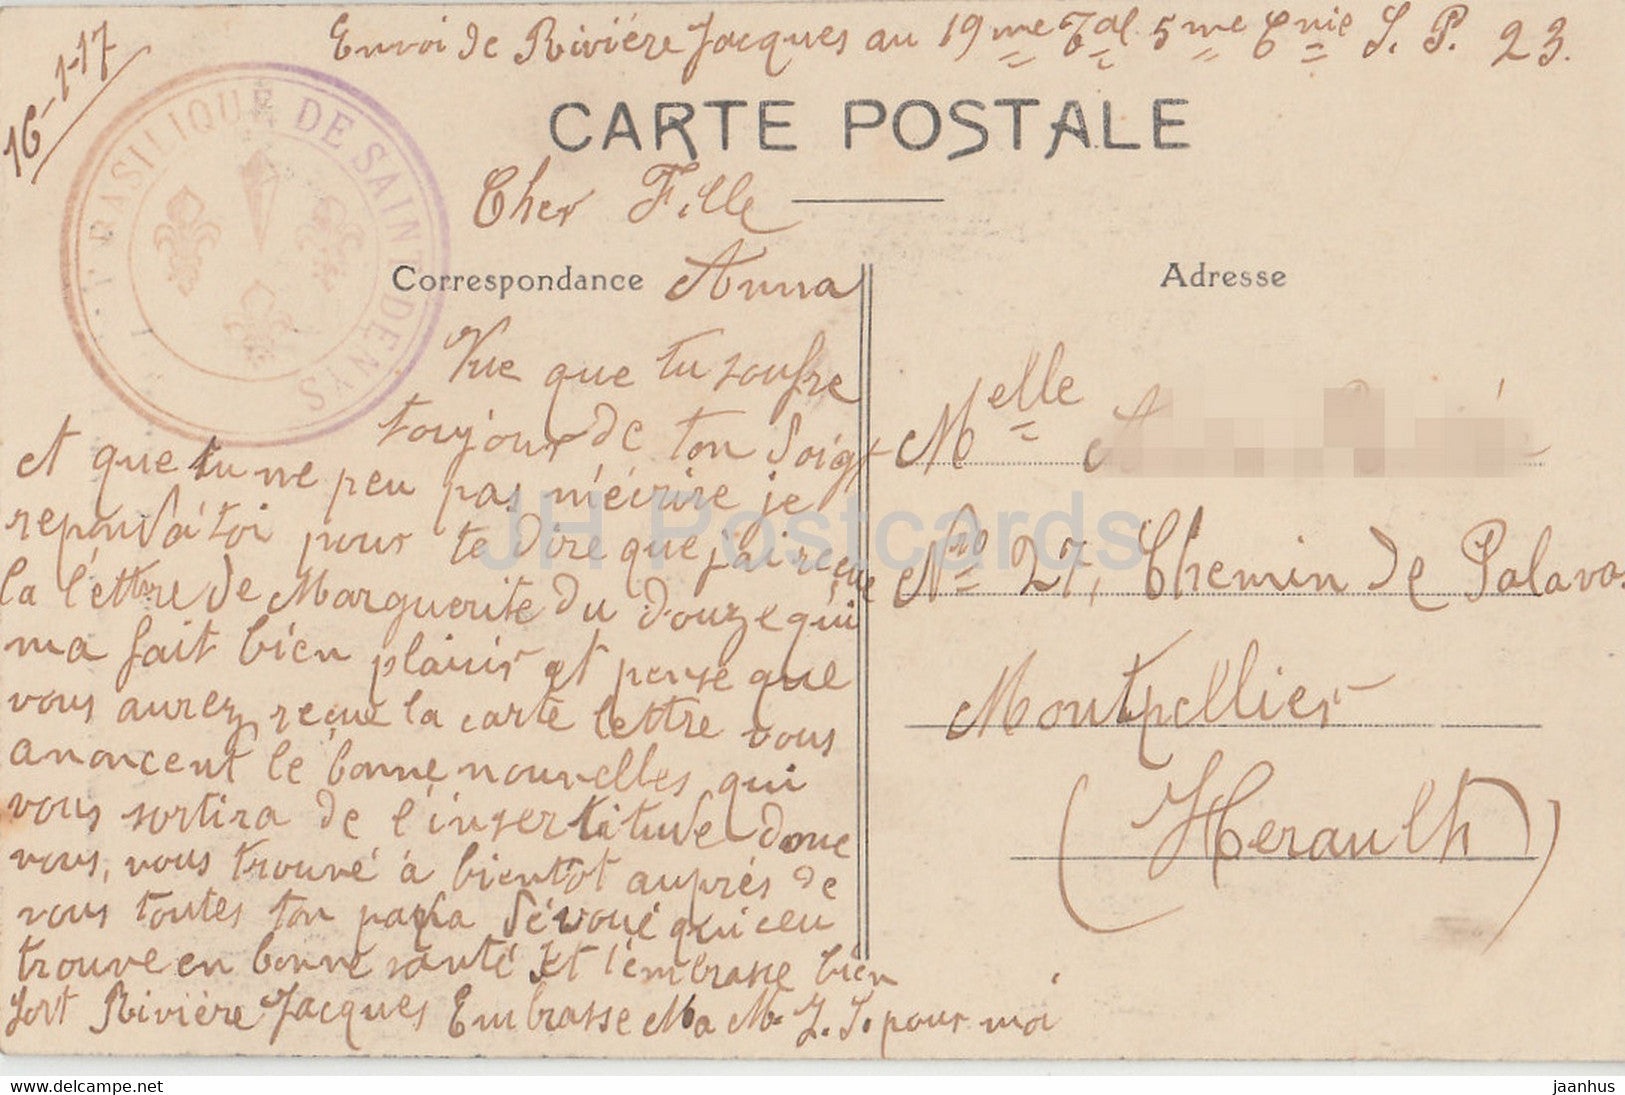 Envoi de Rivière Jacques au 19me Tal 5me Cnie S. P. 23.
16-1-17
BASILIQUE DE SAINT DENYS
CARTE POSTALE
Cher Fille
Correspondance
Anna
Adresse
Vue que tu soufre
toujour de ton Doigt
et que tu ne peu pas m'écrire je
repond à toi pour te dire que j'ai reçue
la lettre de Marguerite du douze qui
ma fait bien plaisir et pense que
vous aurez reçue la carte lettre vous
anoncent le bonne nouvelles qui
vous sortira de l'insertitude donc
vous, vous trouvé à bientôt auprés de
vous toutes ton papa Dévoué qui ceu
trouve en bonne santé et t'embrasse bien
fort Rivière Jacques Embrasse Ma M. J. J. pour moi
Melle
No 27, Chemin de Palavas
Montpellier
(Herault)
JH Postcards
delcampe.net
jaanhus